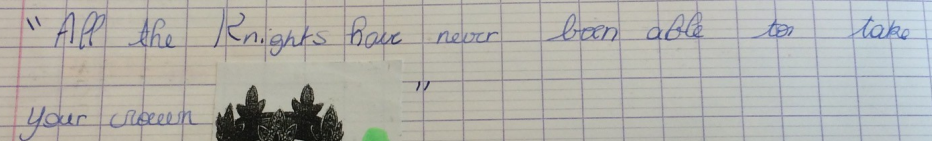 " All the Knights have never been able to take
your crown "